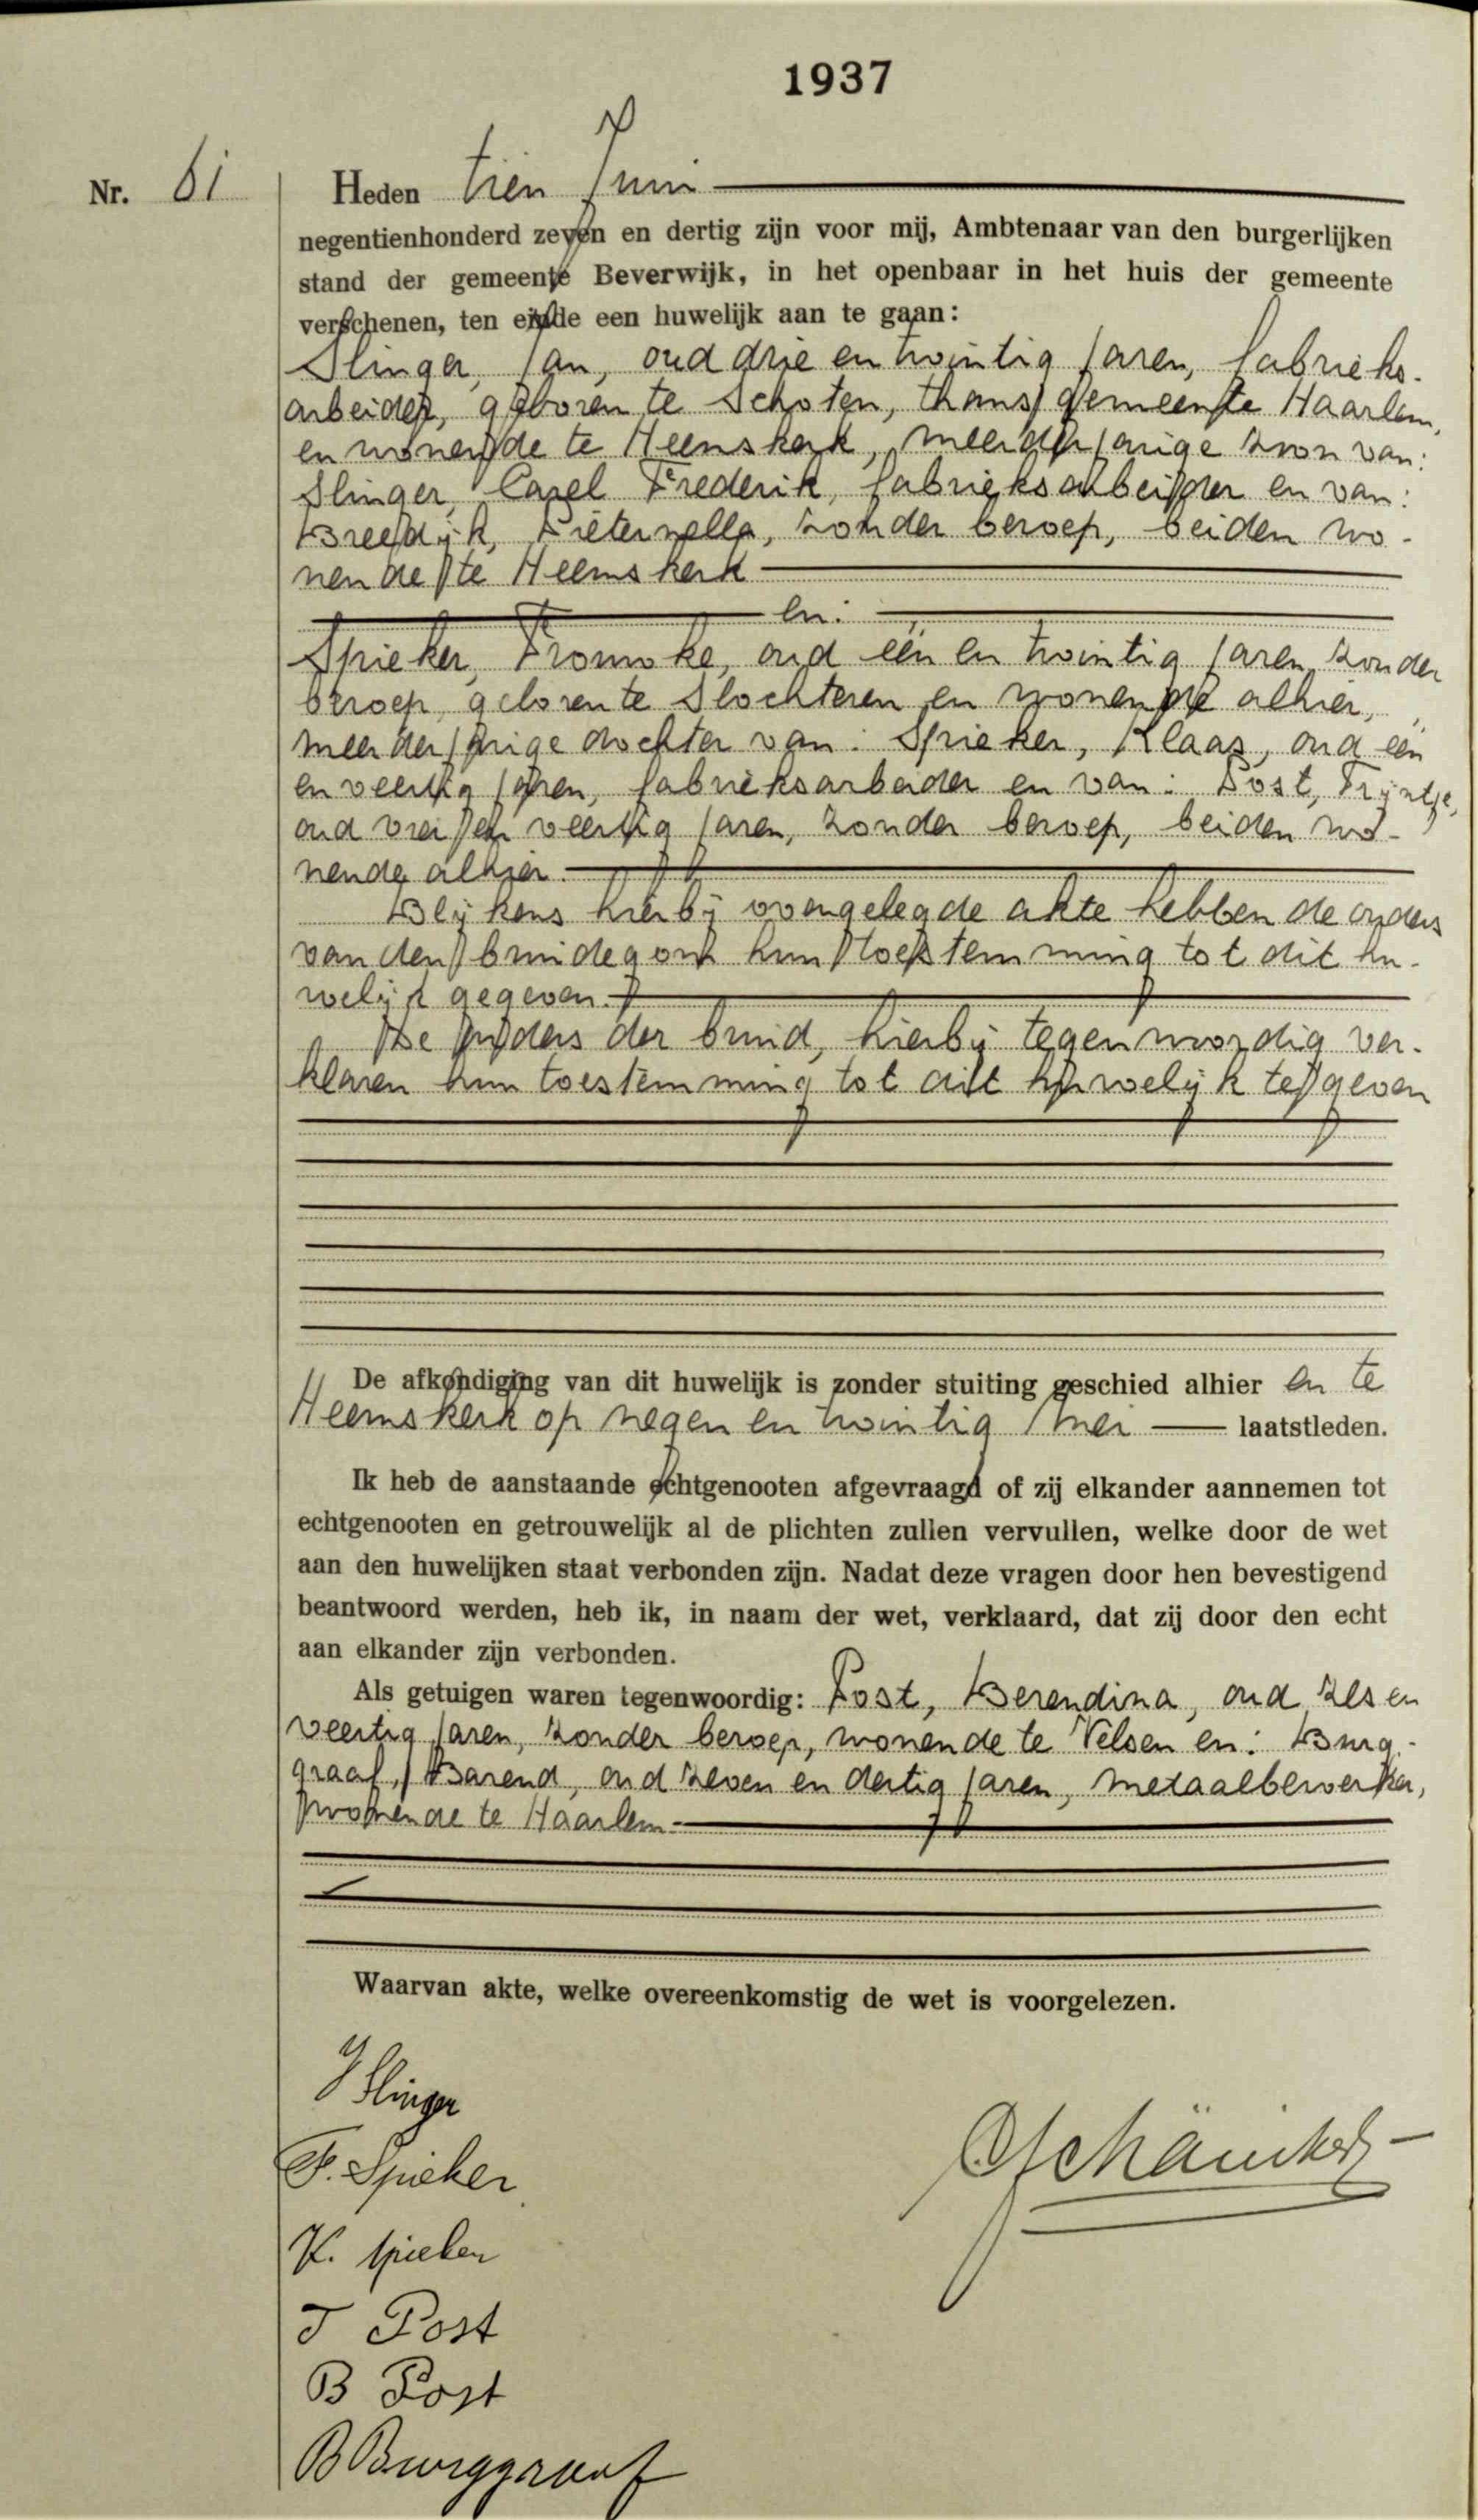 1937
Nr. 61
Heden tien Juni
negentienhonderd zeven en dertig zijn voor mij, Ambtenaar van den burgerlijken
stand der gemeente Beverwijk, in het openbaar in het huis der gemeente
verschenen, ten einde een huwelijk aan te gaan:
Slinger, Jan, oud drie en twintig jaren, fabrieks-
arbeider, geboren te Schoten, thans gemeente Haarlem,
en wonende te Heemskerk, meerderjarige zoon van:
Slinger, Carel Frederik, fabrieksarbeider en van:
Breedijk, Pieternella, zonder beroep, beiden wo-
nende te Heemskerk
en:
Spieker, Frouwke, oud één en twintig jaren, zonder
beroep, geboren te Slochteren en wonende alhier,
meerderjarige dochter van: Spieker, Klaas, oud één
en veertig jaren, fabrieksarbeider en van: Post, Trijntje,
oud vier en veertig jaren, zonder beroep, beiden wo-
nende alhier.
Blijkens hierbij overgelegde akte hebben de ouders
van den bruidegom hun toestemming tot dit hu-
welijk gegeven.
De ouders der bruid, hierbij tegenwoordig ver-
klaren hun toestemming tot dit huwelijk te geven
De afkondiging van dit huwelijk is zonder stuiting geschied alhier en te
Heemskerk op negen en twintig Mei laatstleden.
Ik heb de aanstaande echtgenooten afgevraagd of zij elkander aannemen tot
echtgenooten en getrouwelijk al de plichten zullen vervullen, welke door de wet
aan den huwelijken staat verbonden zijn. Nadat deze vragen door hen bevestigend
beantwoord werden, heb ik, in naam der wet, verklaard, dat zij door den echt
aan elkander zijn verbonden.
Als getuigen waren tegenwoordig: Post, Berendina, oud zes en
veertig jaren, zonder beroep, wonende te Velsen en: Burg-
graaf, Barend, oud zeven en dertig jaren, metaalbewerker,
wonende te Haarlem.
Waarvan akte, welke overeenkomstig de wet is voorgelezen.
J Slinger
F. Spieker
K. Spieker
T Post
B Post
B Burggraaf